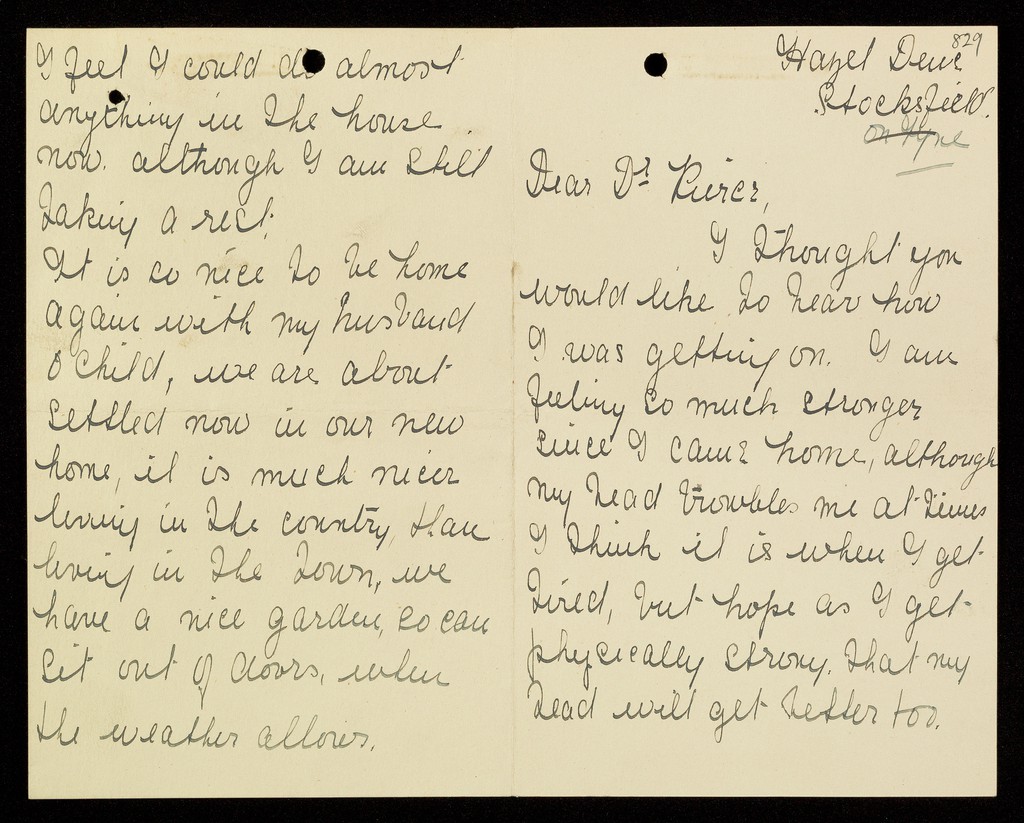 I feel I could do almost
anything in the house
now. although I am still
taking a rest.
It is so nice to be home
again with my husband
& child, we are about
settled now in our new
home, it is much nicer
living in the country, than
living in the town, we
have a nice garden, so can
sit out of doors, when
the weather allows.
829
Hazel Dene
Stocksfield.
on Tyne
Dear Dr. Pierce,
I thought you
would like to hear how
I was getting on. I am
feeling so much stronger
since I came home, although
my head troubles me at times
I think it is when I get
tired, but hope as I get
physically strong, that my
head will get better too.